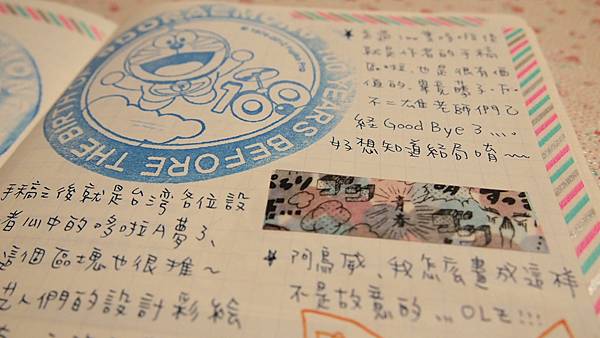 DORAEMON 100 YEARS BEFORE THE BIRTH
100
就是作者的手稿
區啦,也是很有價
值的,畢竟藤子·F·
不二雄老師們已
經Good Bye了....
好想知道結局唷~~
青春
手稿之後就是台灣各位設
者心中的哆啦A夢了、
這個區塊也很推~
藝人們的設計彩繪
★ 阿烏威、我怎麼畫放這樣
不是故意的...OLZ!!!